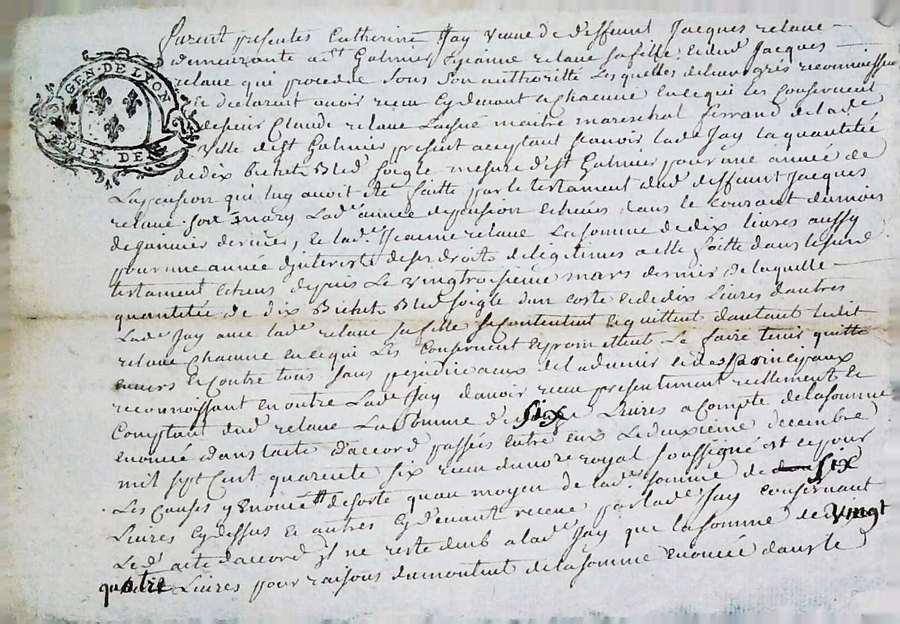 GEN. DE LYON
DIX DE
furent presentes Catherine Jay veuve de deffunt Jacques relave
demeurante a st Galmier Jeanne relave sa fille et dud Jacques
relave qui procede sous son authorité Lesquelles de leur gré reconnoissent
et declarent avoir receu cy devant chacune en ce qui les concernent
de sieur Claude relave Laisné maitre mareschal ferrand de lad
ville de st Galmier present acceptant scavoir lad Jay la quantitée
de dix bichets Bled soigle mesure dud st Galmier pour une année de
La pension qui luy avoit été faitte par le testament dud deffunt Jacques
relave son mary Lad année de pension echüe dans le courant du mois
de janvier dernier, et lad Jeanne relave La somme de dix livres aussy
pour une année d'interets de ses droits de legitimes a elle faitte dans le susd
testament echeus depuis Le vingtroisieme mars dernier de laquelle
quantitée de dix Bichets Bled soigle d'un coste et de dix Livres d'autres
Lad Jay avec lad relave sa fille se contentent et quittent d'autant ledit
relave chacune en ce qui Les concernent et promettent Le faire tenir quitte
envers et contre tous sans prejudice aux de l'advenir et des principaux
reconnoissant en outre Lad Jay d'avoir receu presentement reellement et
Comptant dud relave La somme de six Livres a compte de la somme
enoncée dans l'acte d'accord passées entre eux Le deuxieme decembre
mil sept cent quarente six receu du nore royal soussigné est ce pour
Les causes y Enoncées de sorte qu'au moyen de lad somme de six
Livres cy dessus et autres cy devant receue par lad Jay concernant
Led acte d'accord il ne reste deub a lad Jay que la somme de vingt
quatre Livres pour raisons du montant de la somme enoncée dans le